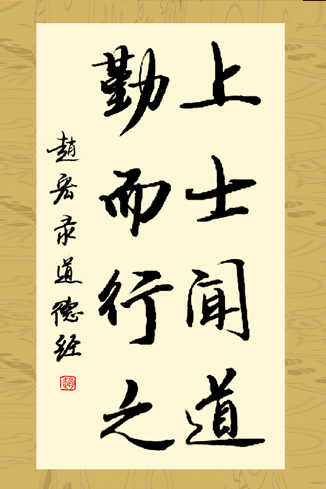 上士闻道
勤而行之
赵宏录道德经